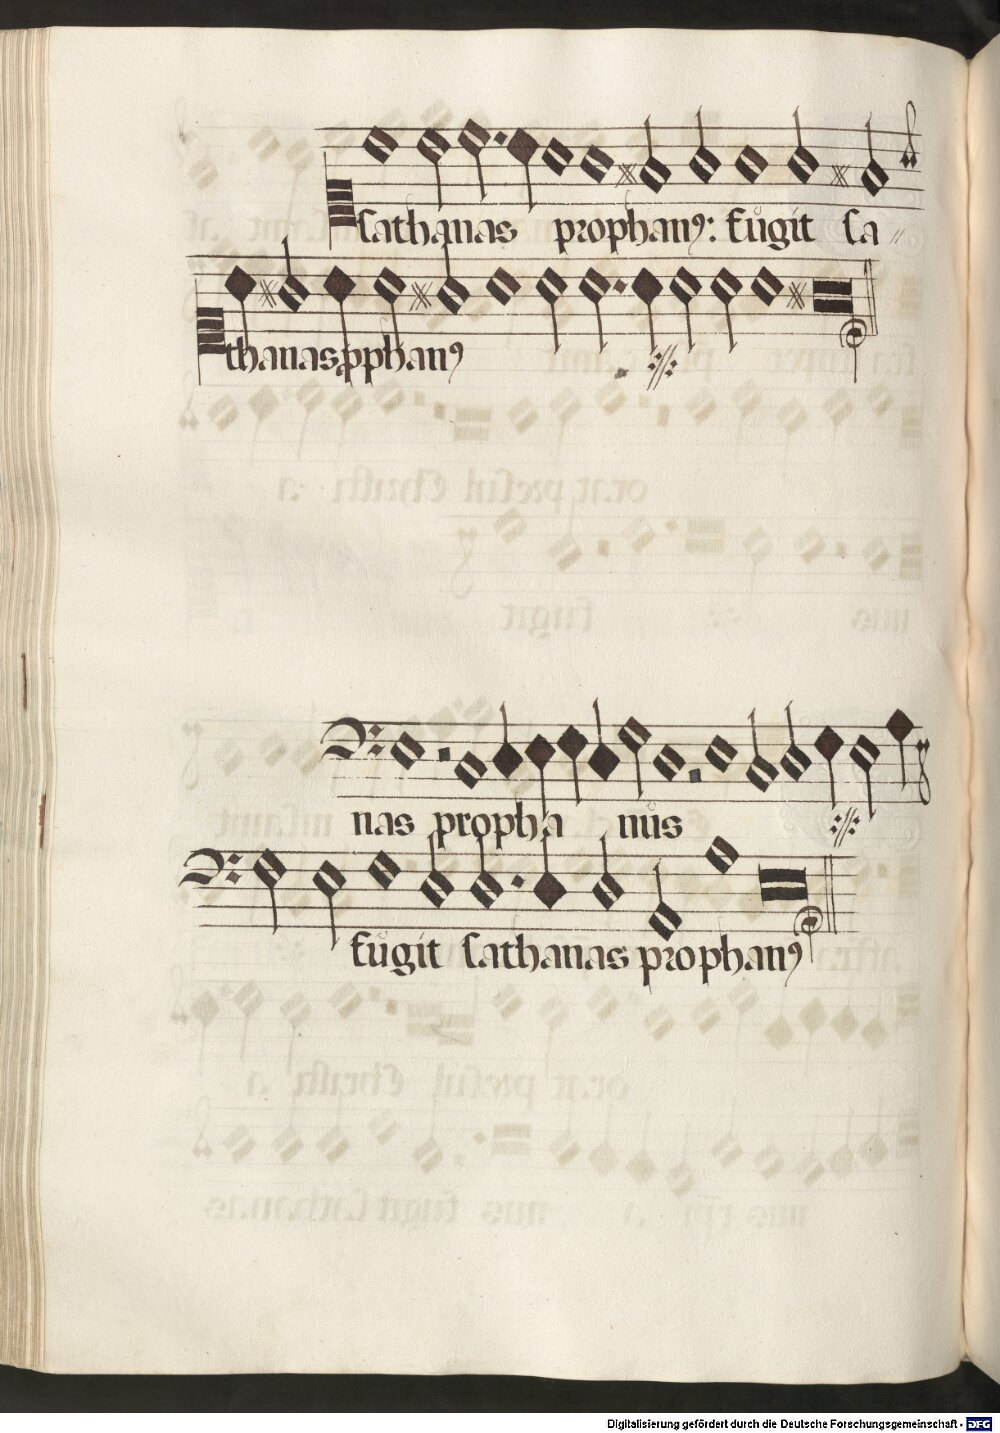 Sathanas prophanꝰ: fugit Sa〃
thanas ꝓphanꝰ
nas propha nus
fugit Sathanas prophanꝰ
Digitalisierung gefördert durch die Deutsche Forschungsgemeinschaft - DFG